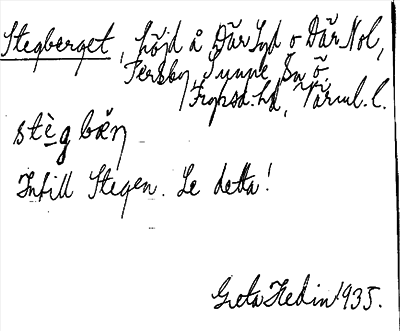 Stegberget, höjd å Där Syd o Där Nol,
Torsby, Sunne Sn ö.
Fryksd. hd, Värml. l.
stègbærŋ
Intill Stegen. Se detta!
Greta Hedin 1935.